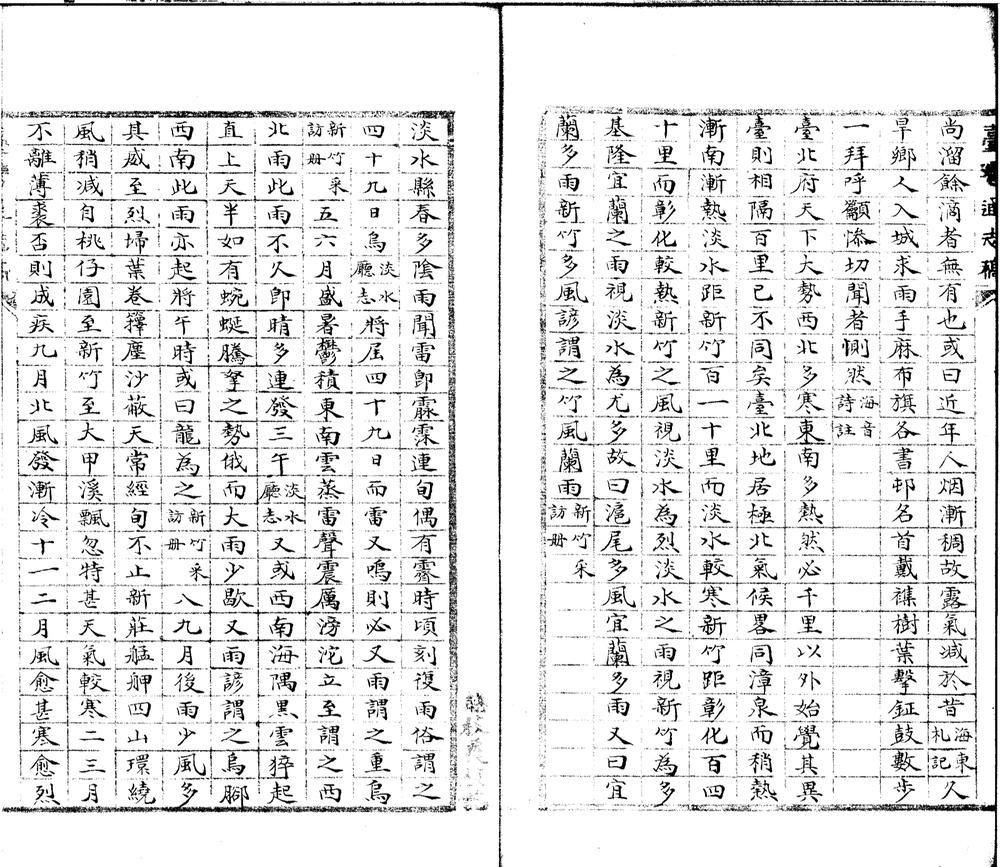 臺灣通志稿
尚溜餘滴者無有也或曰近年人烟漸稠故露氣減於昔海東札記久
旱鄉人入城求雨手麻布旗各書邨名首戴襍樹葉擊鉦鼓數步
一拜呼顲慘切聞者惻然海音詩註
臺北府天下大勢西北多寒東南多熱然必千里以外始覺其異
臺則相隔百里已不同矣臺北地居極北氣候畧同漳泉而稍熱
漸南漸熱淡水距新竹百一十里而淡水較寒新竹距彰化百四
十里而彰化較熱新竹之風視淡水為烈淡水之雨視新竹為多
基隆宜蘭之雨視淡水為尤多故曰滬尾多風宜蘭多雨又曰宜
蘭多雨新竹多風諺謂之竹風蘭雨新竹采訪册
淡水縣春多陰雨聞雷即霡霂連旬偶有霽時頃刻復雨俗謂之
四十九日烏淡水廳志將屆四十九日而雷又鳴則必又雨謂之重烏
新竹采訪册五六月盛暑鬱積東南雲蒸雷聲震厲滂沱立至謂之西
北雨此雨不久即晴多連發三午淡水廳志又或西南海隅黑雲猝起
直上天半如有蜿蜒騰拏之勢俄而大雨少歇又雨諺謂之烏腳
西南此雨亦起將午時或曰龍為之新竹采訪册八九月後雨少風多
其威至烈埽葉卷籜塵沙蔽天常經旬不止新莊艋舺四山環繞
風稍減自桃仔園至新竹至大甲溪飄忽特甚天氣較寒二三月
不離薄裘否則成疾九月北風發漸冷十一二月風愈甚寒愈烈